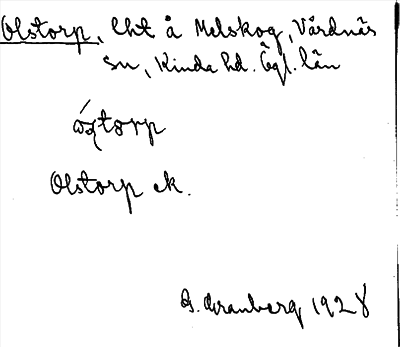 Olstorp, lht å Melskog, Vårdnäs
sn, Kinda hd. Ögl. län
torp
Olstorp ek.
G. Granberg 1928